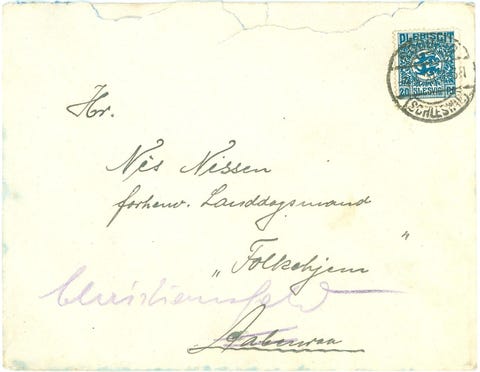 PLEBISCIT
SLESVIG
(SCHLESWIG)
Hr.
Nis Nissen
forhenv. Landdagsmand
„Folkehjem"
Christiansfeld
Aabenraa